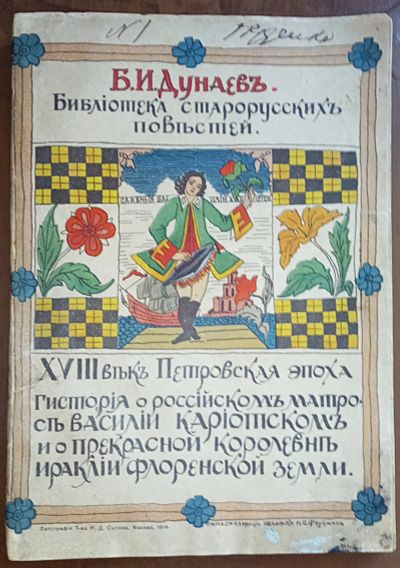 № 1
Б.И.Дунаевъ.
Библіотека старорусскихъ
повѣстей.
XVIII вѣкъ Петровская эпоха
Гисторія о россійскомъ матро-
сѣ Василіи Каріотскомъ
и о прекрасной королевнѣ
Иракліи Флоренской земли.
Литографія Т-ва И. Д. Сытина, Москва, 1914.